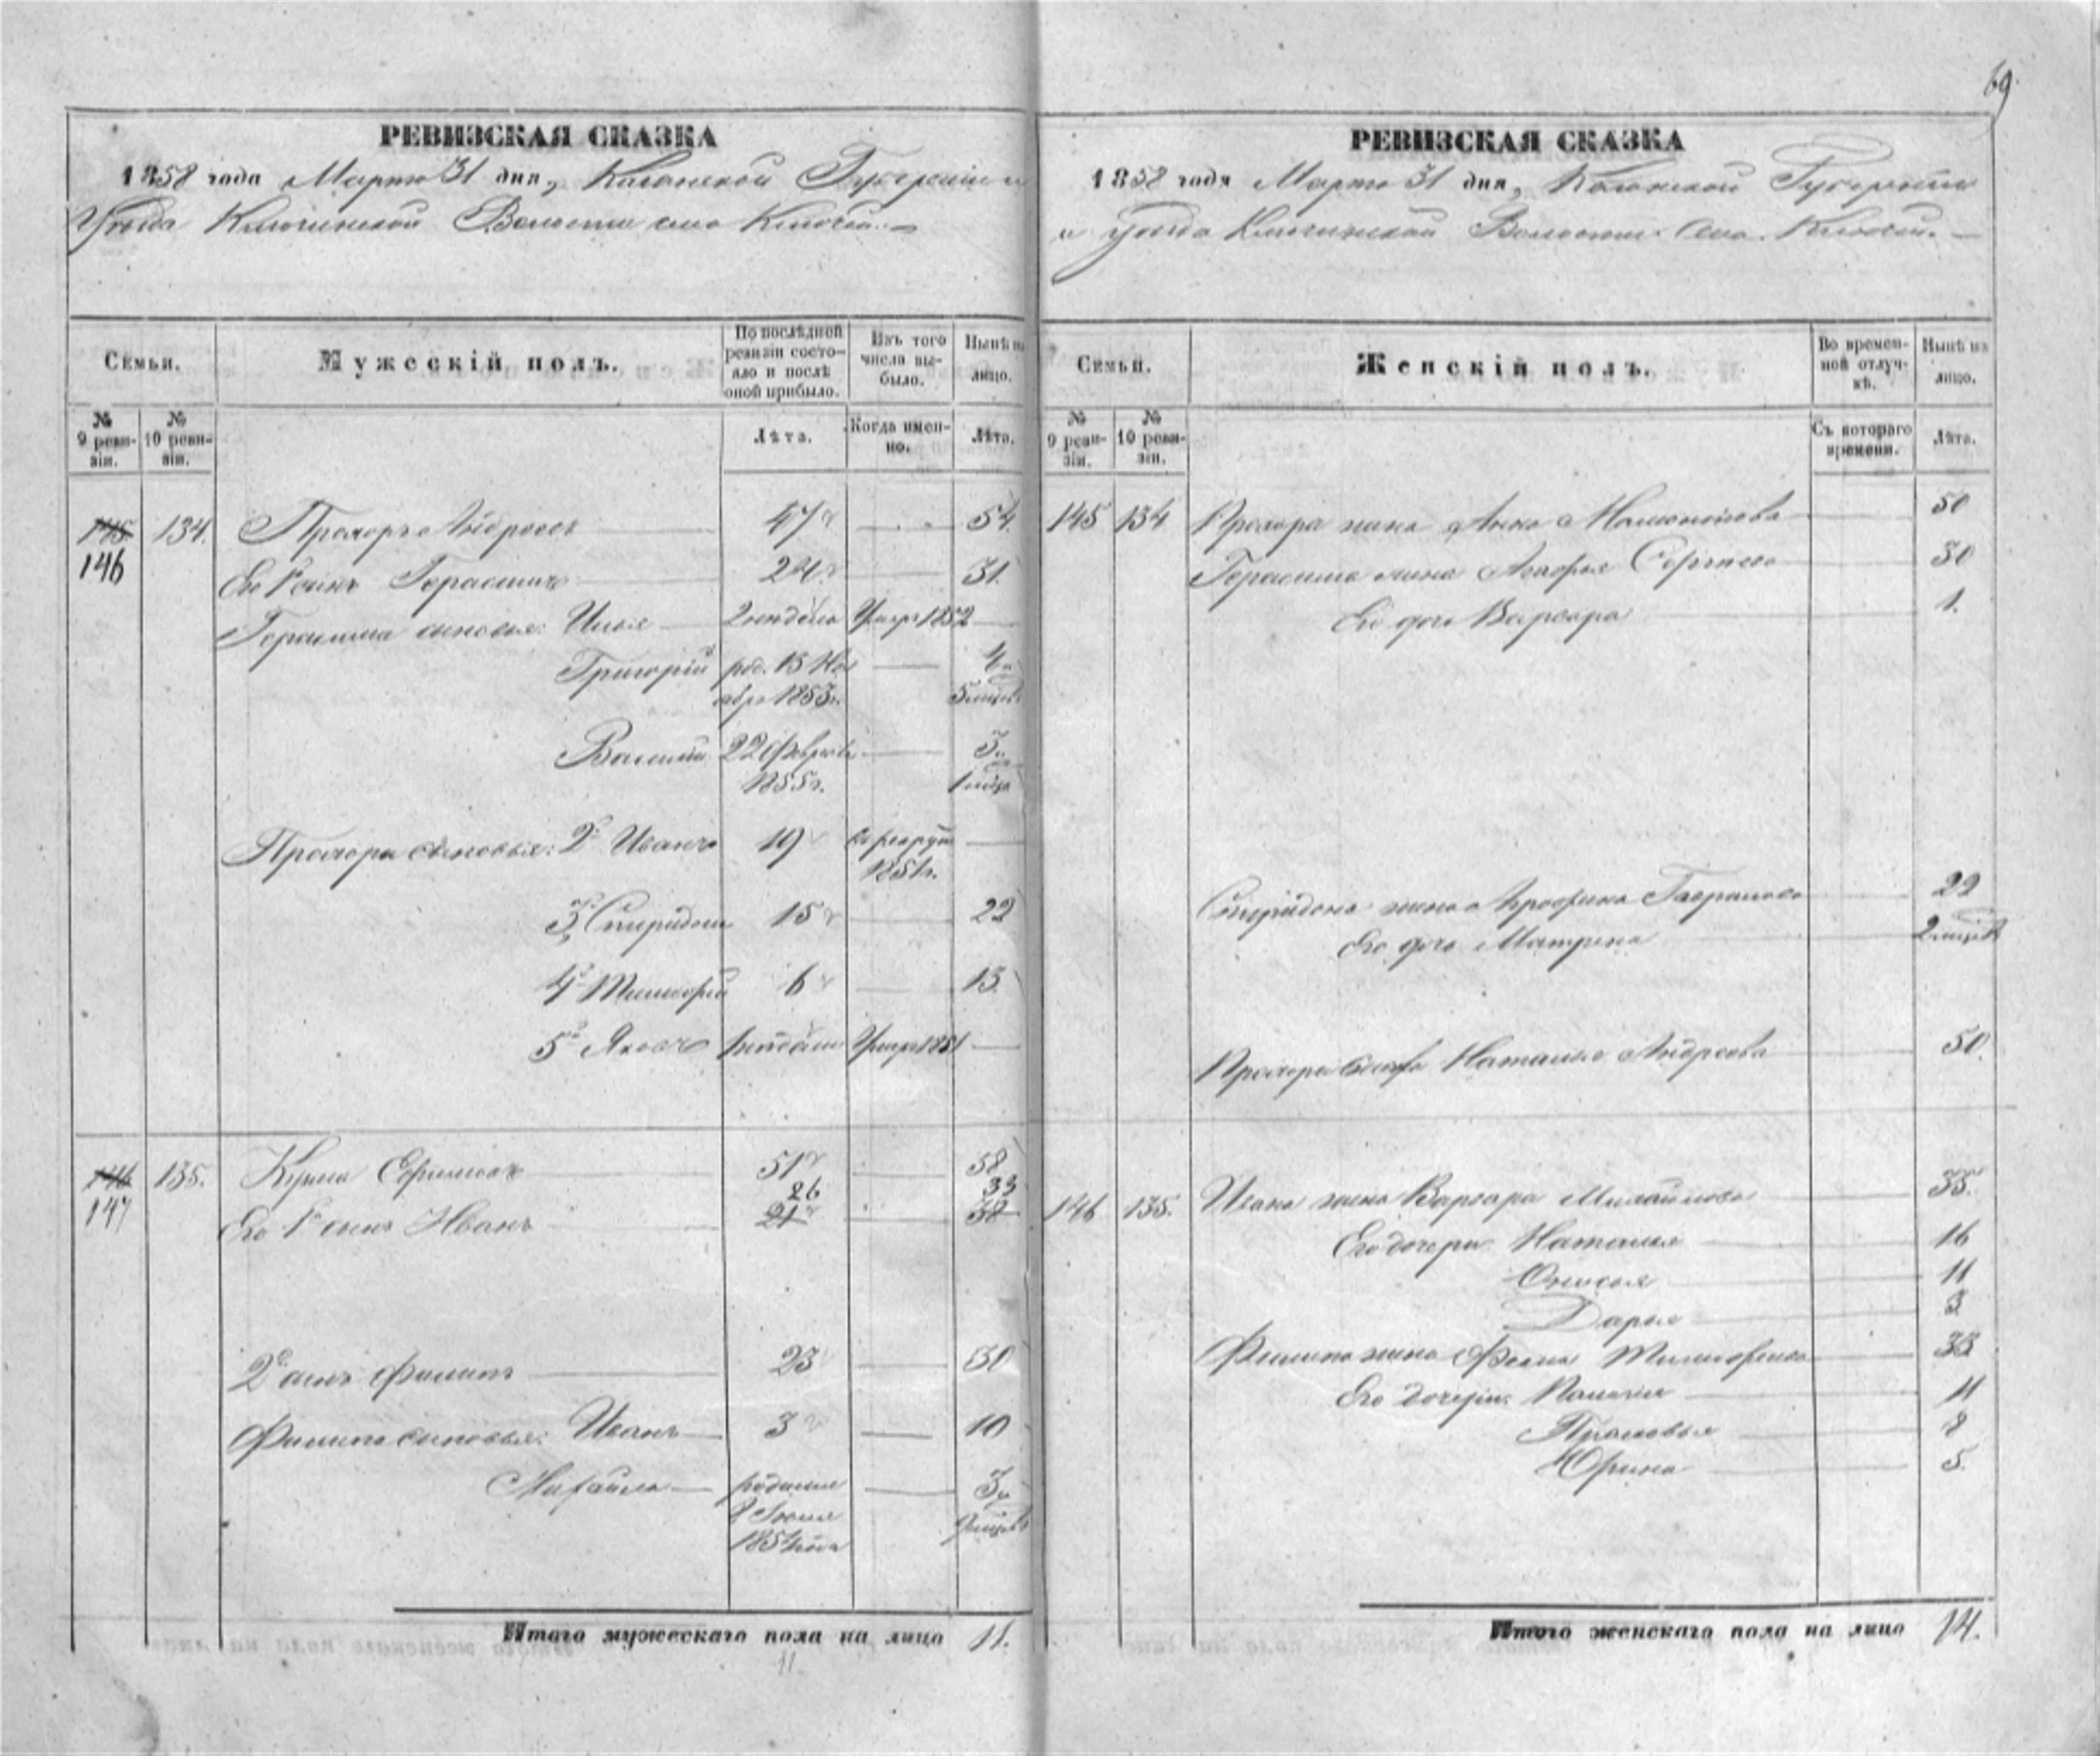 69
РЕВИЗСКАЯ СКАЗКА
1858 года Марта 31 дня, Казанской Губерніи и
Уѣзда Ключинской Волости села Ключей.
Семьи.
Мужескій полъ.
По послѣдней ревизіи состояло и послѣ оной прибыло.
Изъ того числа выбыло.
Нынѣ на лицо.
№ 9 ревизіи.
№ 10 ревизіи.
Лѣта.
Когда именно.
Лѣта.
145 134. Прохоръ Андреевъ 47 54.
146
Его 1й сынъ Герасимъ 24. 31.
Герасима сыновья: Илья 2 недѣль Умеръ 1852
Григорій род. 13 Ноября 1853г. 4 5 мѣсяц
Василій 22 Февраля 1855г. 3 1 мѣсяц
Прохора сыновья: 2й Иванъ 19 въ рекруты 1851г.
3й Спиридонъ 15 22
4й Тимофей 6 13
5й Яковъ недѣли Умеръ 1851
146 135. Кузма Ефимовъ 51 58
147
26 33
Его 1й сынъ Иванъ 21 38
2й сынъ Филипъ 23 30
Филипа сыновья: Иванъ 3 10
Михайла родился 8 Іюня 1854 года 3 9 мѣсяц
Итого мужескаго пола на лицо 11.
11
РЕВИЗСКАЯ СКАЗКА
1858 года Марта 31 дня, Казанской Губерніи
и уѣзда Ключинской Волости Села Ключей.
Семьи.
Женскій полъ.
Во временной отлучкѣ.
Нынѣ на лицо.
№ 9 ревизіи.
№ 10 ревизіи.
Съ котораго времени.
Лѣта.
145 134 Прохора жена Анна 50
Герасима жена Агафья Сергѣева 30
Его дочь Варвара 1.
Спиридона жена Аграфена Гаврилова 22
Его дочь Матрена 2 мѣсяц
Прохора Наталья Андреева 50.
146 135. Ивана жена Варвара Михайлова 35.
Его дочери Наталья 16
Онисья 11
Дарья 3
Филипа жена Фекла Тимофеева 33
Его дочери: Палагѣя 11
Прасковья 8
Юфина 5.
Итого женскаго пола на лицо 14.